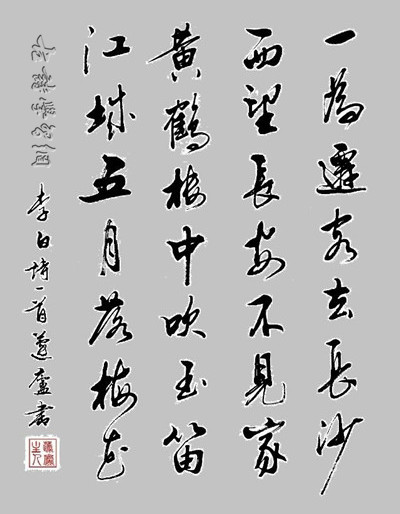 一為遷客去長沙
西望長安不見家
黃鶴樓中吹玉笛
江城五月落梅花
李白詩一首書